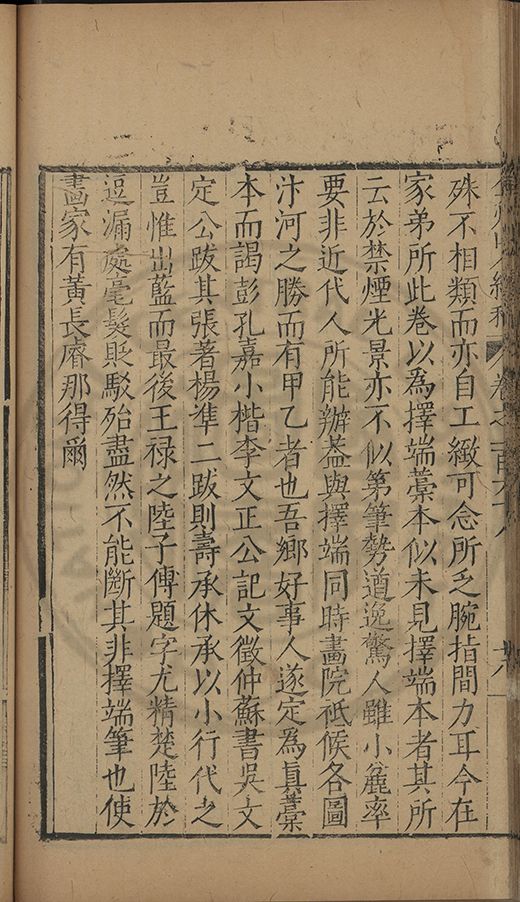 殊不相類而亦自工緻可念所乏腕指間力耳今在
家弟所此卷以爲擇端藁本似未見擇端本者其所
云於禁煙光景亦不似第筆勢遒逸驚人雖小麄率
要非近代人所能辦葢與擇端同時畫院祗候各圖
汴河之勝而有甲乙者也吾鄉好事人遂定爲眞藁
本而謁彭孔嘉小楷李文正公記文徵仲蘇書吳文
定公跋其張著楊準二跋則壽承休承以小行代之
豈惟出藍而最後王禄之陸子傳題字尤精楚陸於
逗漏處毫髮貶駁殆盡然不能斷其非擇端筆也使
畫家有黃長睿那得爾
卷之一百六十八